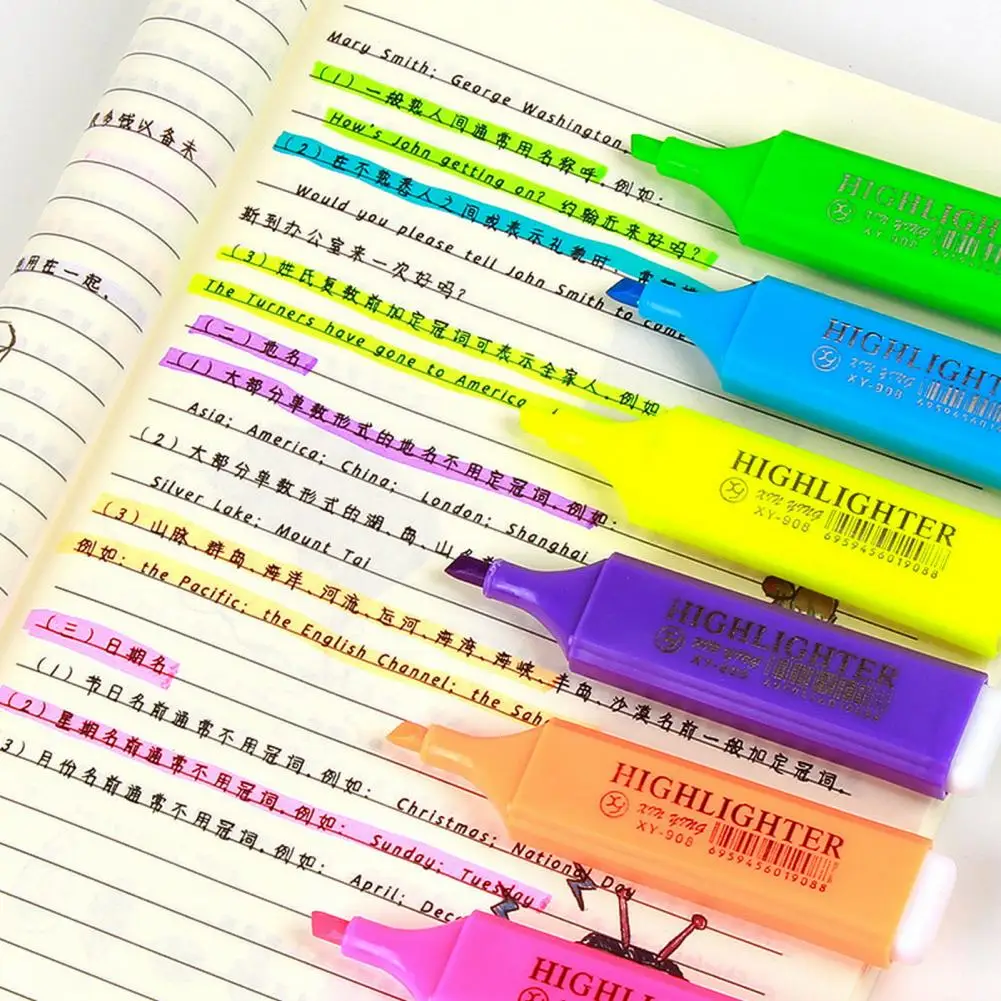 备未
用在一起.
Mary Smith; George Washington
(1)一般熟人间通常用名称呼,例如:
How's John getting on? 约翰近来好吗?
(2)在不熟悉人之间或表示礼貌时,
Would you please tell John Smith to come
斯到办公室来一次好吗?
(3)姓氏复数前加定冠词可表示全家人,例如
The Turners have gone to America
(二)地名
(1)大部分单数形式的地名不用定冠词,例如:
Asia; America; China; London; Shanghai
(2)大部分单数形式的湖,岛,山名
Silver Lake; Mount Tai
(3)山脉,群岛,海洋,河流,运河,海湾,海峡,半岛,沙漠名前一般加定冠词,
例如: the Pacific; the English Channel; the Sah
(三)日期名
(1)节日名前通常不用冠词,例如: Christmas; National Day
(2)星期名前通常不用冠词,例如: Sunday; Tuesday
3)月份名前通常不用冠词,例如: April; Dec
HIGHLIGHTER
XY-908
HIGHLIGHTER
XY-908
HIGHLIGHTER
XIN YING
XY-908
6959456019088
HIGHLIGHTER
HIGHLIGHTER
XIN YING
XY-908
6959456019088
HIGHLIGHTER